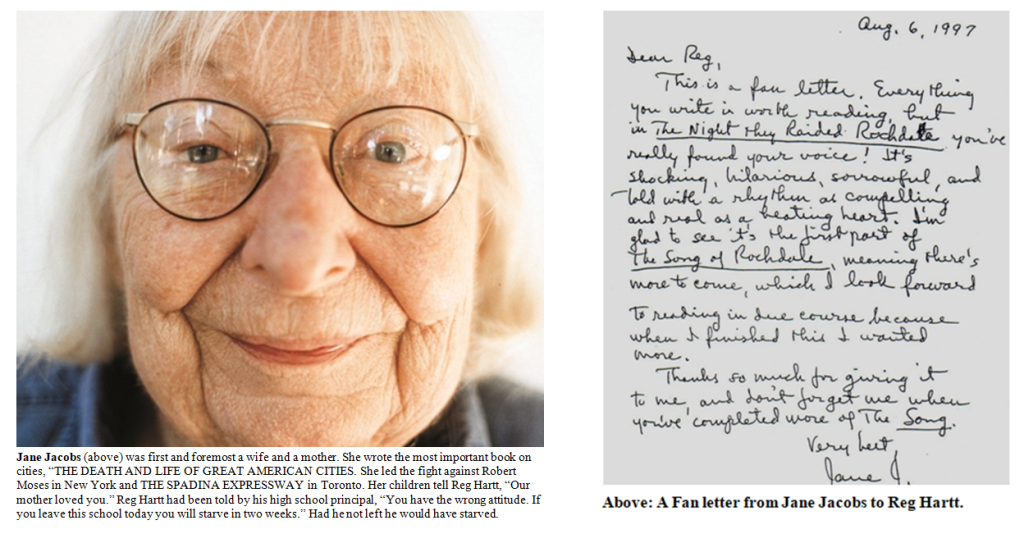 Jane Jacobs (above) was first and foremost a wife and a mother. She wrote the most important book on
cities, “THE DEATH AND LIFE OF GREAT AMERICAN CITIES. She led the fight against Robert
Moses in New York and THE SPADINA EXPRESSWAY in Toronto. Her children tell Reg Hartt, “Our
mother loved you.” Reg Hartt had been told by his high school principal, “You have the wrong attitude. If
you leave this school today you will starve in two weeks.” Had he not left he would have starved.
Aug. 6, 1997
Dear Reg,
This is a fan letter. Everything
you write is worth reading, but
in The Night they Raided Rochdale you've
really found your voice! It's
shocking, hilarious, sorrowful, and
told with a rhythm as compelling
and real as a beating heart. I'm
glad to see it's the first part of
The Song of Rochdale, meaning there's
more to come, which I look forward
to reading in due course because
when I finished this I wanted
more.
Thanks so much for giving it
to me, and don't forget me when
you've completed more of The Song.
Very best
Jane J.
Above: A Fan letter from Jane Jacobs to Reg Hartt.